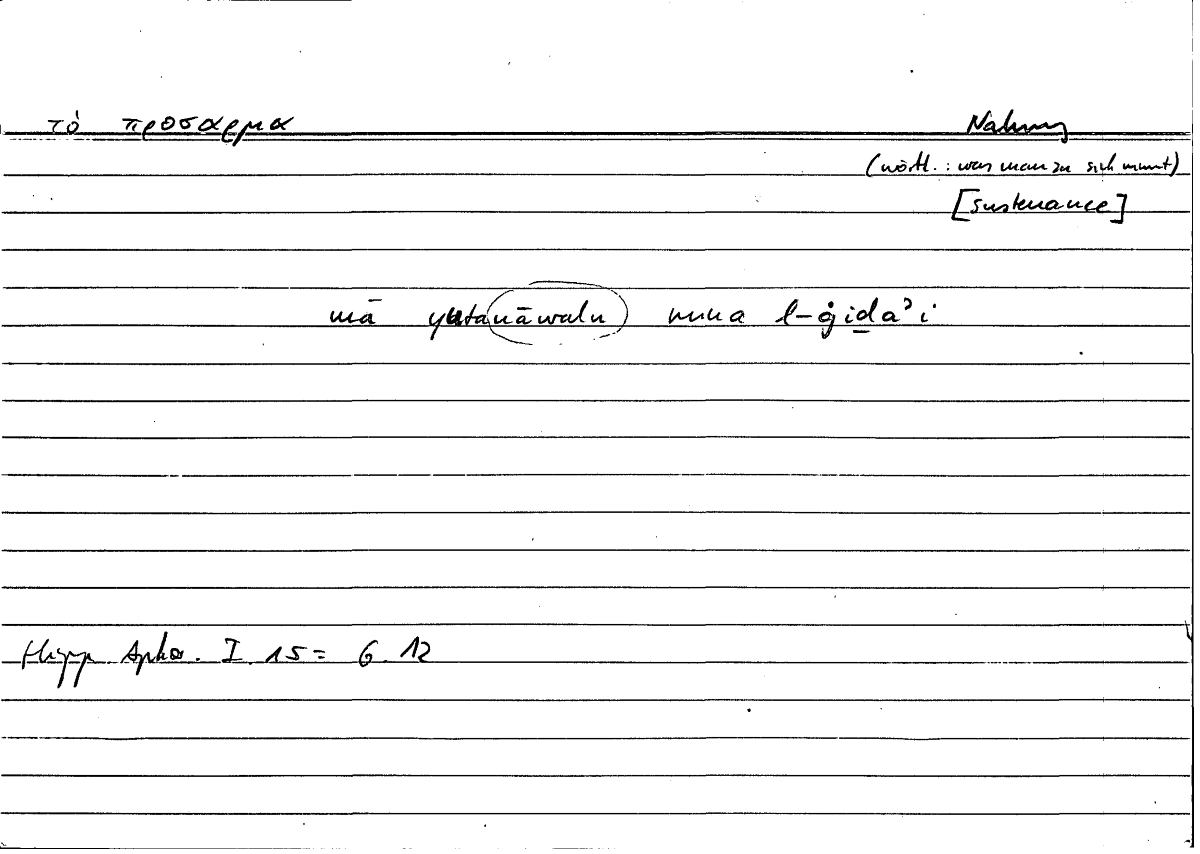 τὸ προσαρμα Nahrung
(wörtl.: was man zu sich nimmt)
[sustenance]
mā yutanāwalu mina l-ġiḏaʾi
Hipp Aphor. I 15 = 6. 12